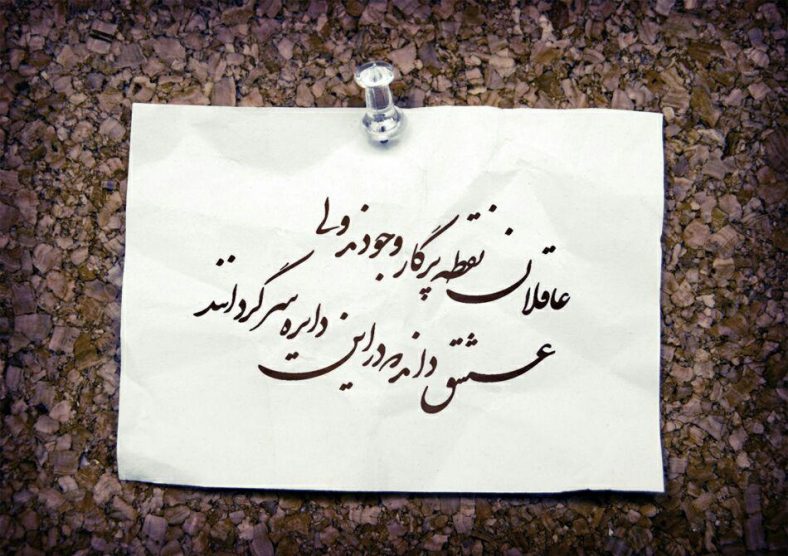 عاقلان نقطه پرگار وجودند ولی
عشق داند که در این دایره سرگردانند